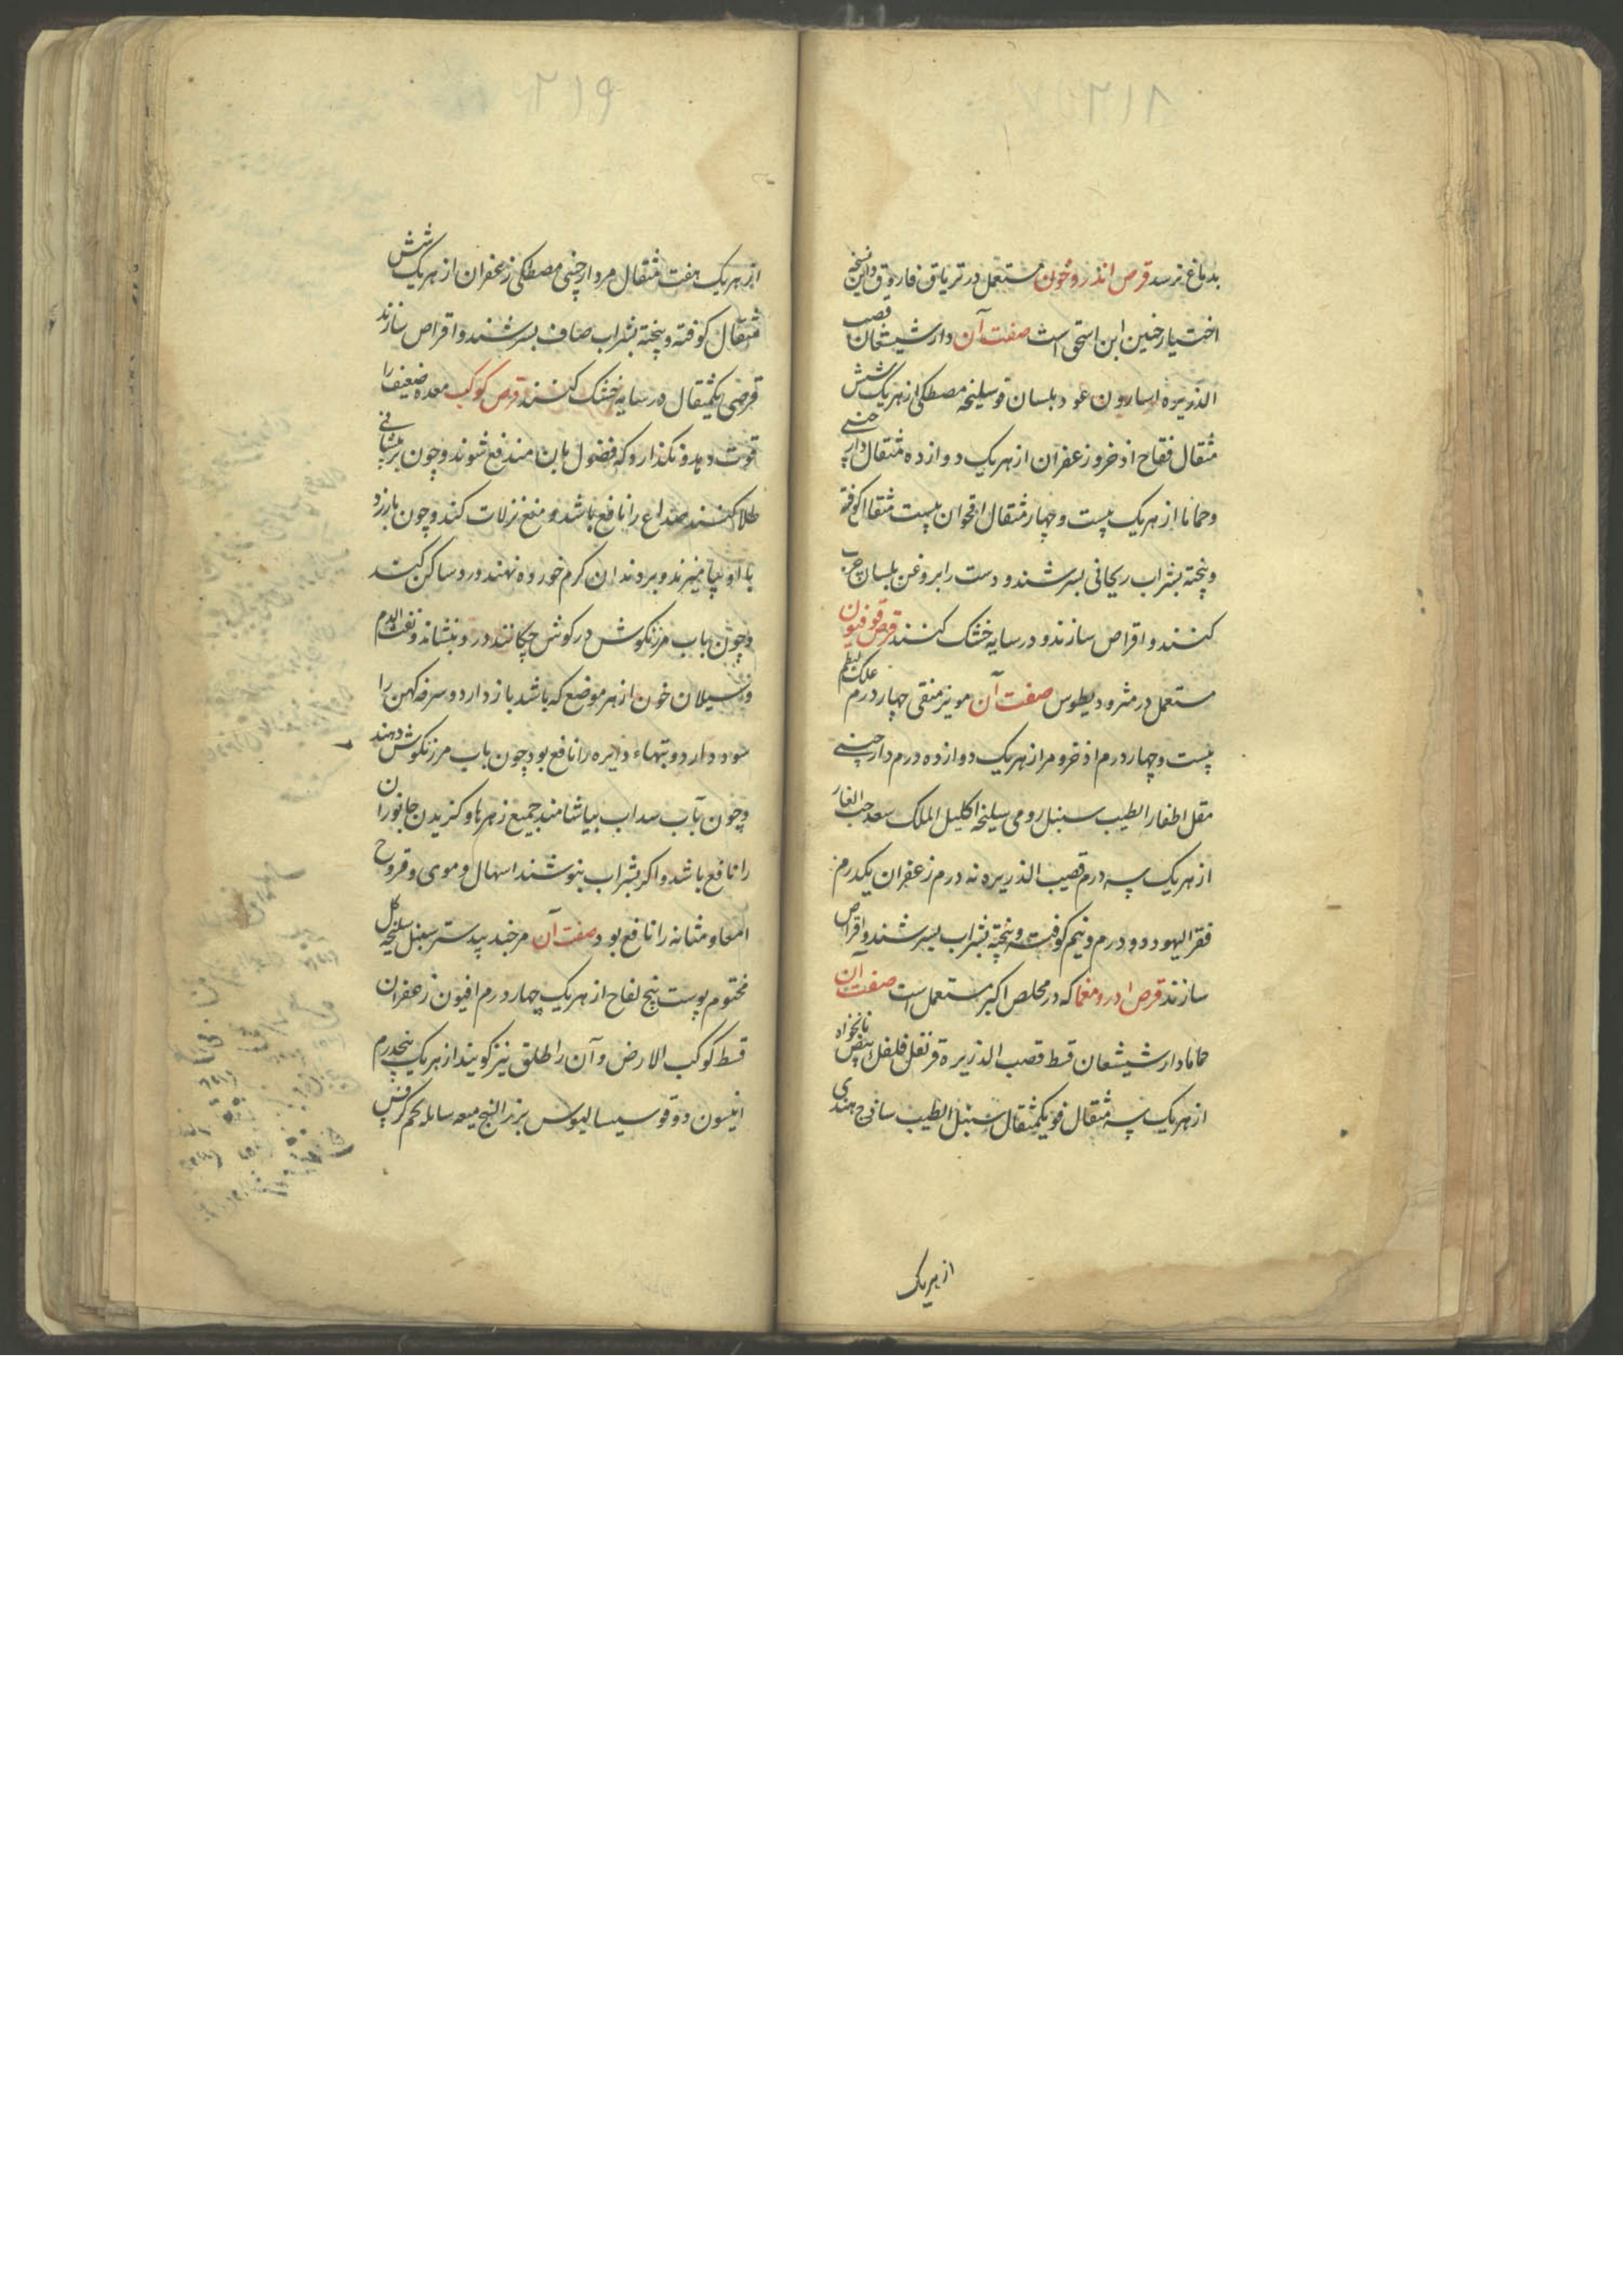 بدماغ نرسد قرص اندروخون مستعمل در تریاق فاروق و این نسخه
اختیار حنین ابن اسحق است صفت آن دارشیشعان قصب
الذریره اسارون عود بلسان فو سلیخه مصطکی از هریک شش
مثقال فقاح اذخر و زعفران از هریک دوازده مثقال دارچینی
و حماما از هریک بیست و چهار مثقال اقحوان بیست مثقال کوفته
و پخته بشراب ریحانی بسرشند و دست را بروغن بلسان چرب
کنند و اقراص سازند و در سایه خشک کنند قرص قوفیون
مستعمل در مثرودیطوس صفت آن مویز منقی چهار درم علک البطم
بیست و چهار درم اذخر و مر از هریک دوازده درم دارچینی
مقل اظفار الطیب سنبل رومی سلیخه اکلیل الملک سعد حب الغار
از هریک سه درم قصب الذریره نه درم زعفران یکدرم
فقر الیهود دو درم و نیم کوفته و پخته بشراب بسرشند و اقراص
سازند قرص ادرومغما که در مخلص اکبر مستعمل است صفت آن
حماما دارشیشعان قسط قصب الذریرة قرنفل فلفل ابیض نانخواه
از هریک سه مثقال فو یکمثقال سنبل الطیب ساذج هندی
از هریک
از هریک هفت مثقال مر دارچینی مصطکی زعفران از هریک شش
مثقال کوفته و پخته بشراب صاف بسرشند و اقراص سازند
قرصی یکمثقال در سایه خشک کنند قرص کوکب معده ضعیف را
قوت دهد و نکذارد که فضول بان مندفع شوند و چون بر پیشانی
طلا کنند صداع را نافع باشد و منع نزلات کند و چون بارزد
با او بیامیزند و بر دندان کرم خورده نهند درد ساکن کند
و چون باب مرزنکوش در کوش چکانند درد بنشاند و نفث الدم
و سیلان خون از هر موضع که باشد باز دارد و سرفه کهن را
سود دارد و تبهاء دایره را نافع بود چون باب مرزنکوش دهند
و چون بآب سداب بیاشامند جمیع زهرها و کزیدن جانوران
را نافع باشد و اکر بشراب بنوشند اسهال دموی و قروح
امعا و مثانه را نافع بود صفت آن مر جندبیدستر سنبل سلیخه کل
مختوم پوست بیخ لفاح از هریک چهار درم افیون زعفران
قسط کوکب الارض و آن را طلق نیز کویند از هریک پنجدرم
انیسون دوقو سیسالیوس بزر البنج میعه سایله تخم کرفس